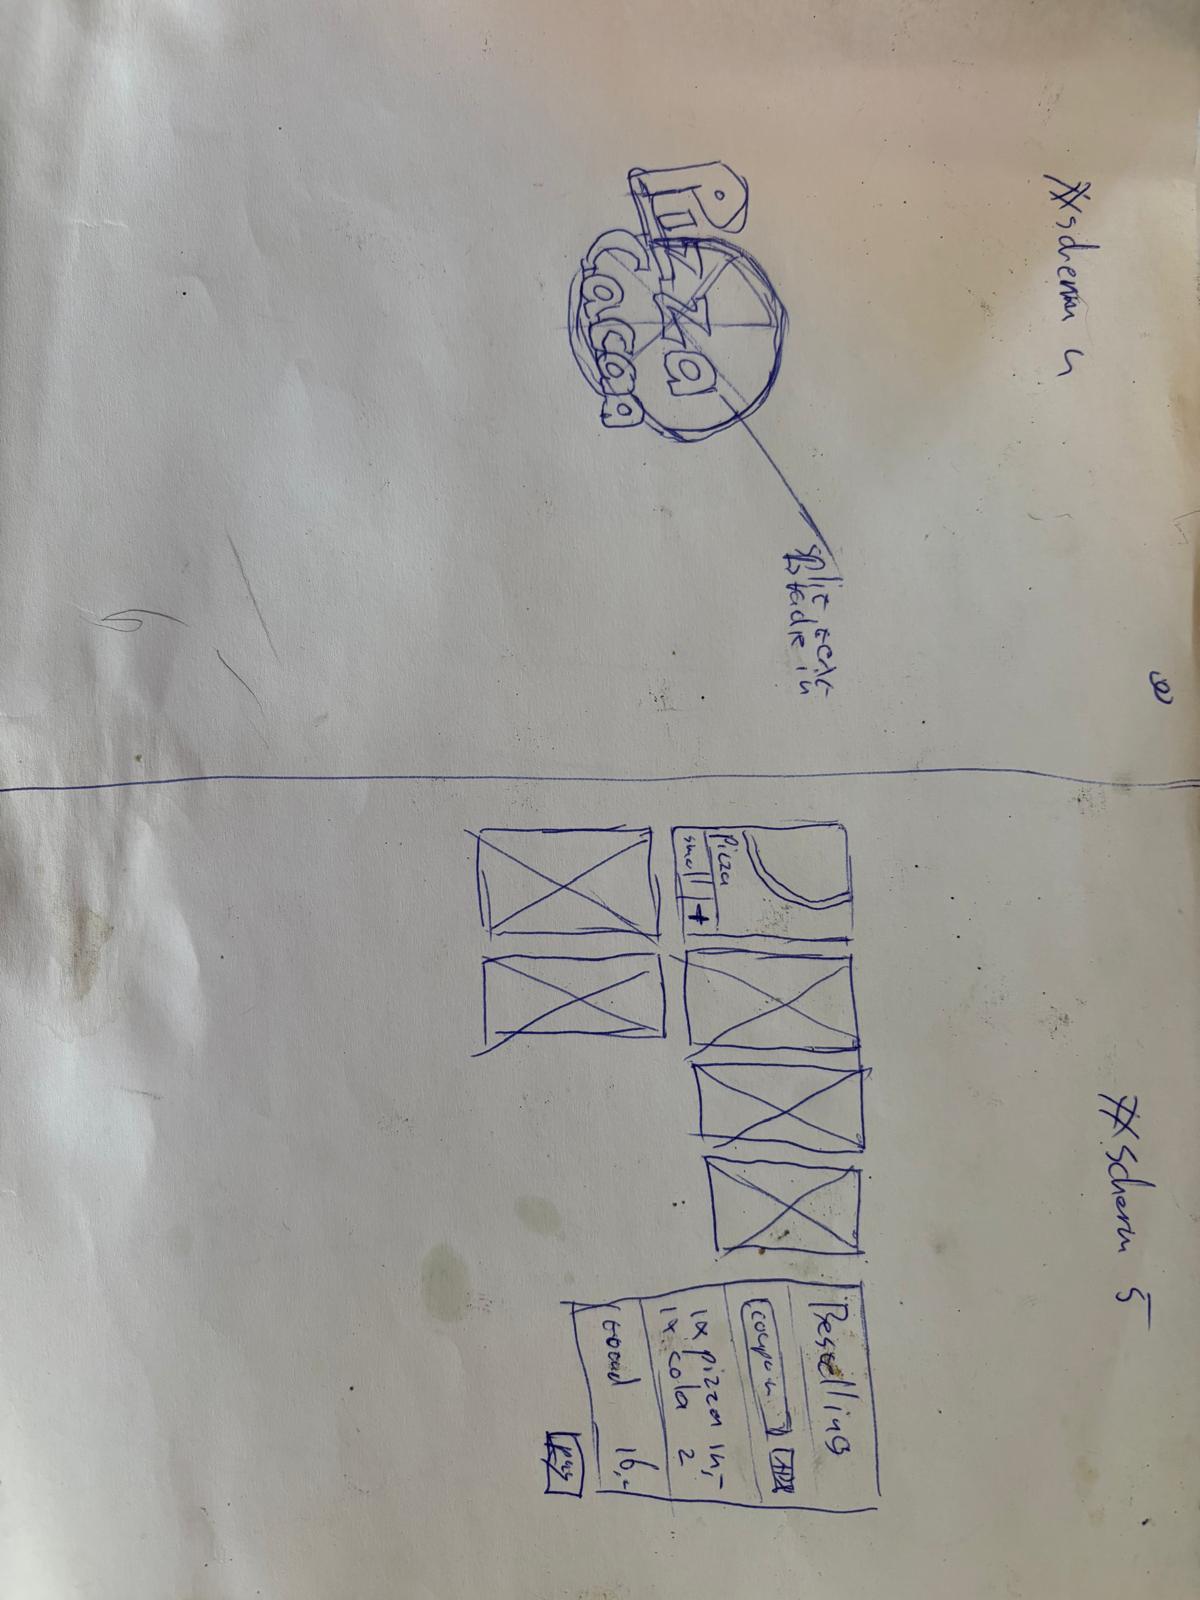 #scherm 4
Pizza
Cacaa
split, zeile
fade in
8
#scherm 5
pizza
small +
Bestelling
coupon ADD
1x pizza 14,-
1x cola 2
totaal 16,-
pay